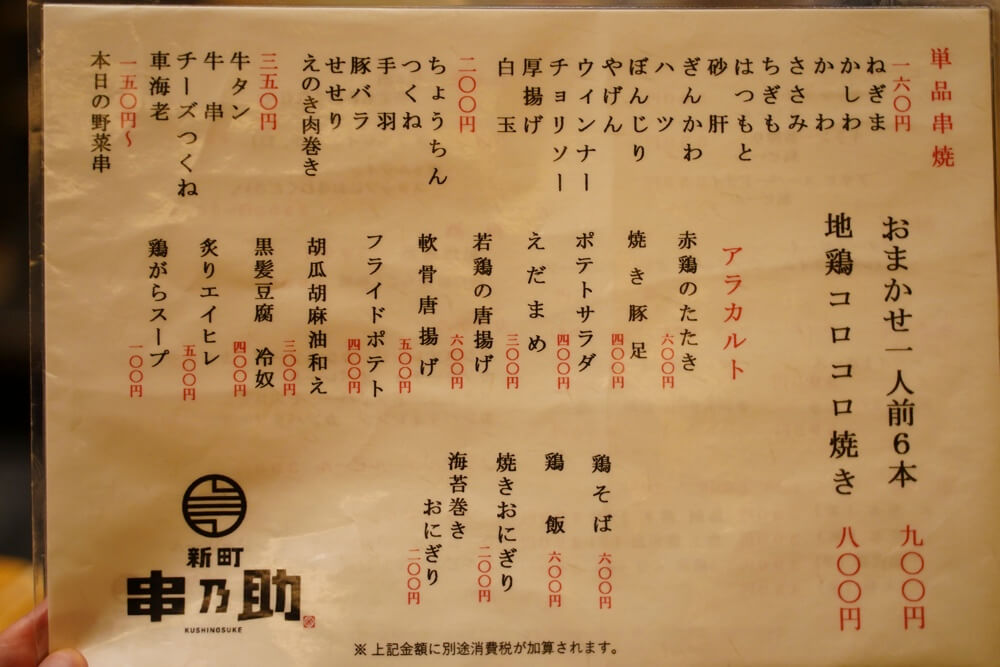 単品串焼
一六〇円
ねぎま
かしわ
かわ
ささみ
ちぎも
はつもと
砂肝
ぎんかわ
ハツ
ぼんじり
やげん
ウィンナー
チョリソー
厚揚げ
白玉
二〇〇円
ちょうちん
つくね
手羽
豚バラ
せせり
えのき肉巻き
三五〇円
牛タン
牛串
チーズつくね
車海老
一五〇円〜
本日の野菜串
おまかせ一人前6本 九〇〇円
地鶏コロコロ焼き 八〇〇円
アラカルト
赤鶏のたたき 六〇〇円
焼き豚足 四〇〇円
ポテトサラダ 四〇〇円
えだまめ 三〇〇円
若鶏の唐揚げ 六〇〇円
軟骨唐揚げ 五〇〇円
フライドポテト 四〇〇円
胡瓜胡麻油和え 三〇〇円
黒髪豆腐 冷奴 四〇〇円
炙りエイヒレ 五〇〇円
鶏がらスープ 一〇〇円
鶏そば 六〇〇円
鶏飯 六〇〇円
焼きおにぎり 二〇〇円
海苔巻き
おにぎり 二〇〇円
新町
串乃助
KUSHINOSUKE
※上記金額に別途消費税が加算されます。